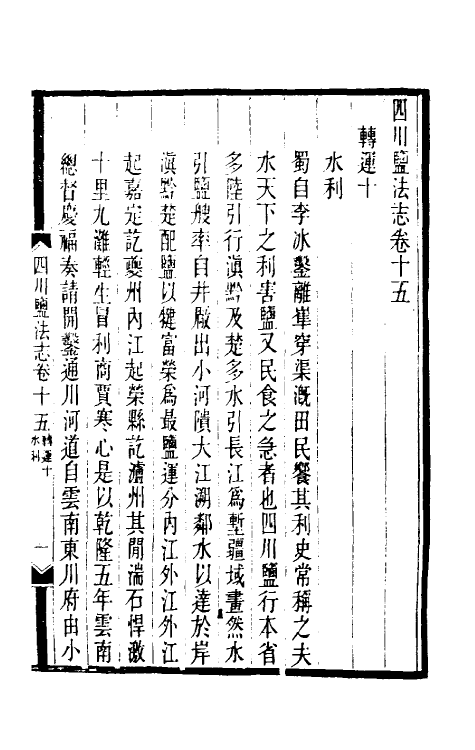 四川鹽法志卷十五
轉運十
水利
蜀自李冰鑿離𡹐穿渠溉田民饗其利史常稱之夫
水天下之利害鹽又民食之急者也四川鹽行本省
多陸引行滇黔及楚多水引長江爲塹疆域畫然水
引鹽艘率自井厰出小河隫大江溯鄰水以達於岸
滇黔楚配鹽以犍富榮爲最鹽運分內江外江外江
起嘉定訖夔州內江起榮縣訖瀘州其閒湍石悍激
十里九灘輕生冒利商賈寒心是以乾隆五年雲南
總督慶福奏請開鑿通川河道自雲南東川府由小
四川鹽法志卷十五 轉運十 水利 一